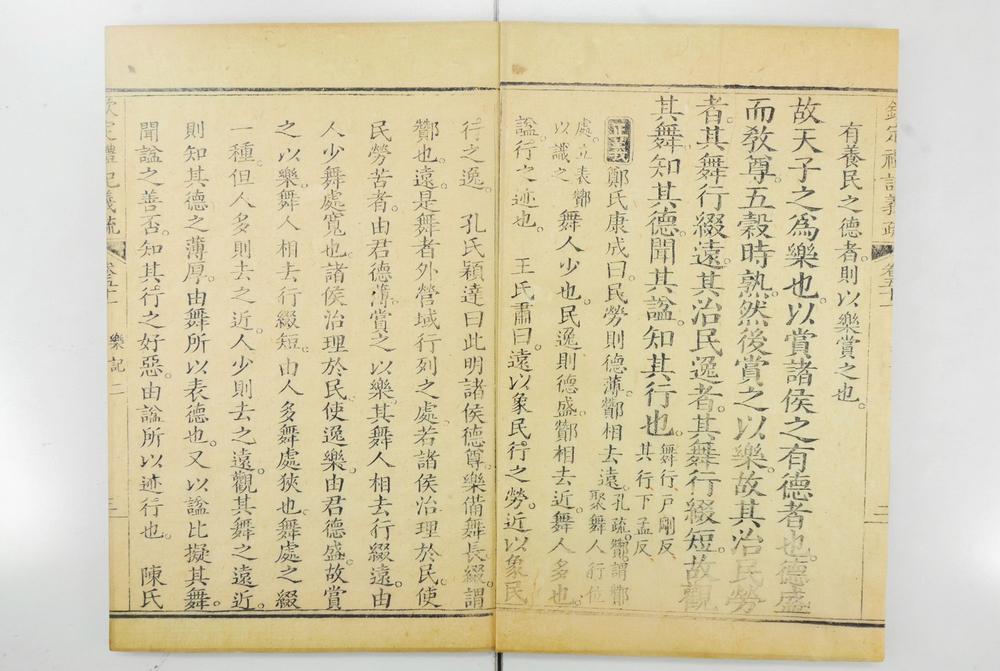 欽定禮記義疏 卷五十一 二
有養民之德者。則以樂賞之也。
故天子之爲樂也。以賞諸侯之有德者也。德盛
而教尊。五穀時熟。然後賞之以樂。故其治民勞
者。其舞行綴遠。其治民逸者。其舞行綴短。故觀
其舞。知其德。聞其諡。知其行也。舞行戶剛反其行下孟反
正義 鄭氏康成曰。民勞則德薄。酇相去遠。孔疏。酇謂酇聚舞人行位
處。立表酇以識之舞人少也。民逸則德盛。酇相去近。舞人多也。
諡。行之迹也。 王氏肅曰。遠以象民行之勞。近以象民
行之逸。 孔氏穎達曰此明諸侯德尊樂備舞長。綴。謂
酇也。遠。是舞者外營域行列之處。若諸侯治理於民。使
民勞苦者。由君德薄。賞之以樂。其舞人相去行綴遠。由
人少舞處寬也。諸侯治理於民。使逸樂。由君德盛。故賞
之以樂。舞人相去行綴短。由人多舞處狹也。舞處之綴
一種。但人多則去之近。人少則去之遠。觀其舞之遠近。
則知其德之薄厚。由舞所以表德也。又以諡比擬其舞。
聞諡之善否。知其行之好惡。由諡所以迹行也。 陳氏
欽定禮記義疏 卷五十一 樂記二 三